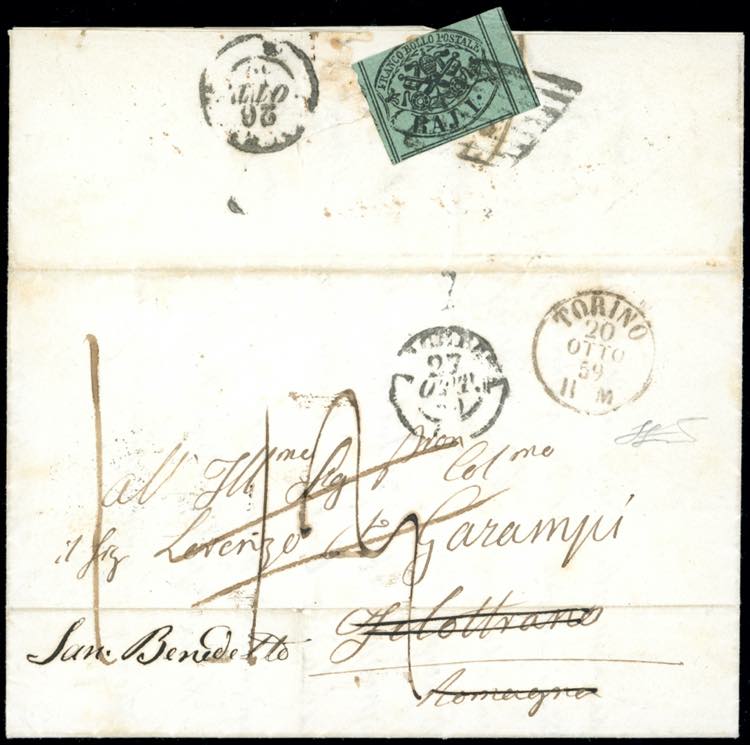 FRANCO BOLLO POSTALE
BAJ. 1.
26
OTT
TORINO
20
OTTO
59
11 M
27
OTT.
all' Ill.me Sig Pron Col.mo
il Sig Lorenzo Garampi
San. Benedetto
Filottrano
Romagna